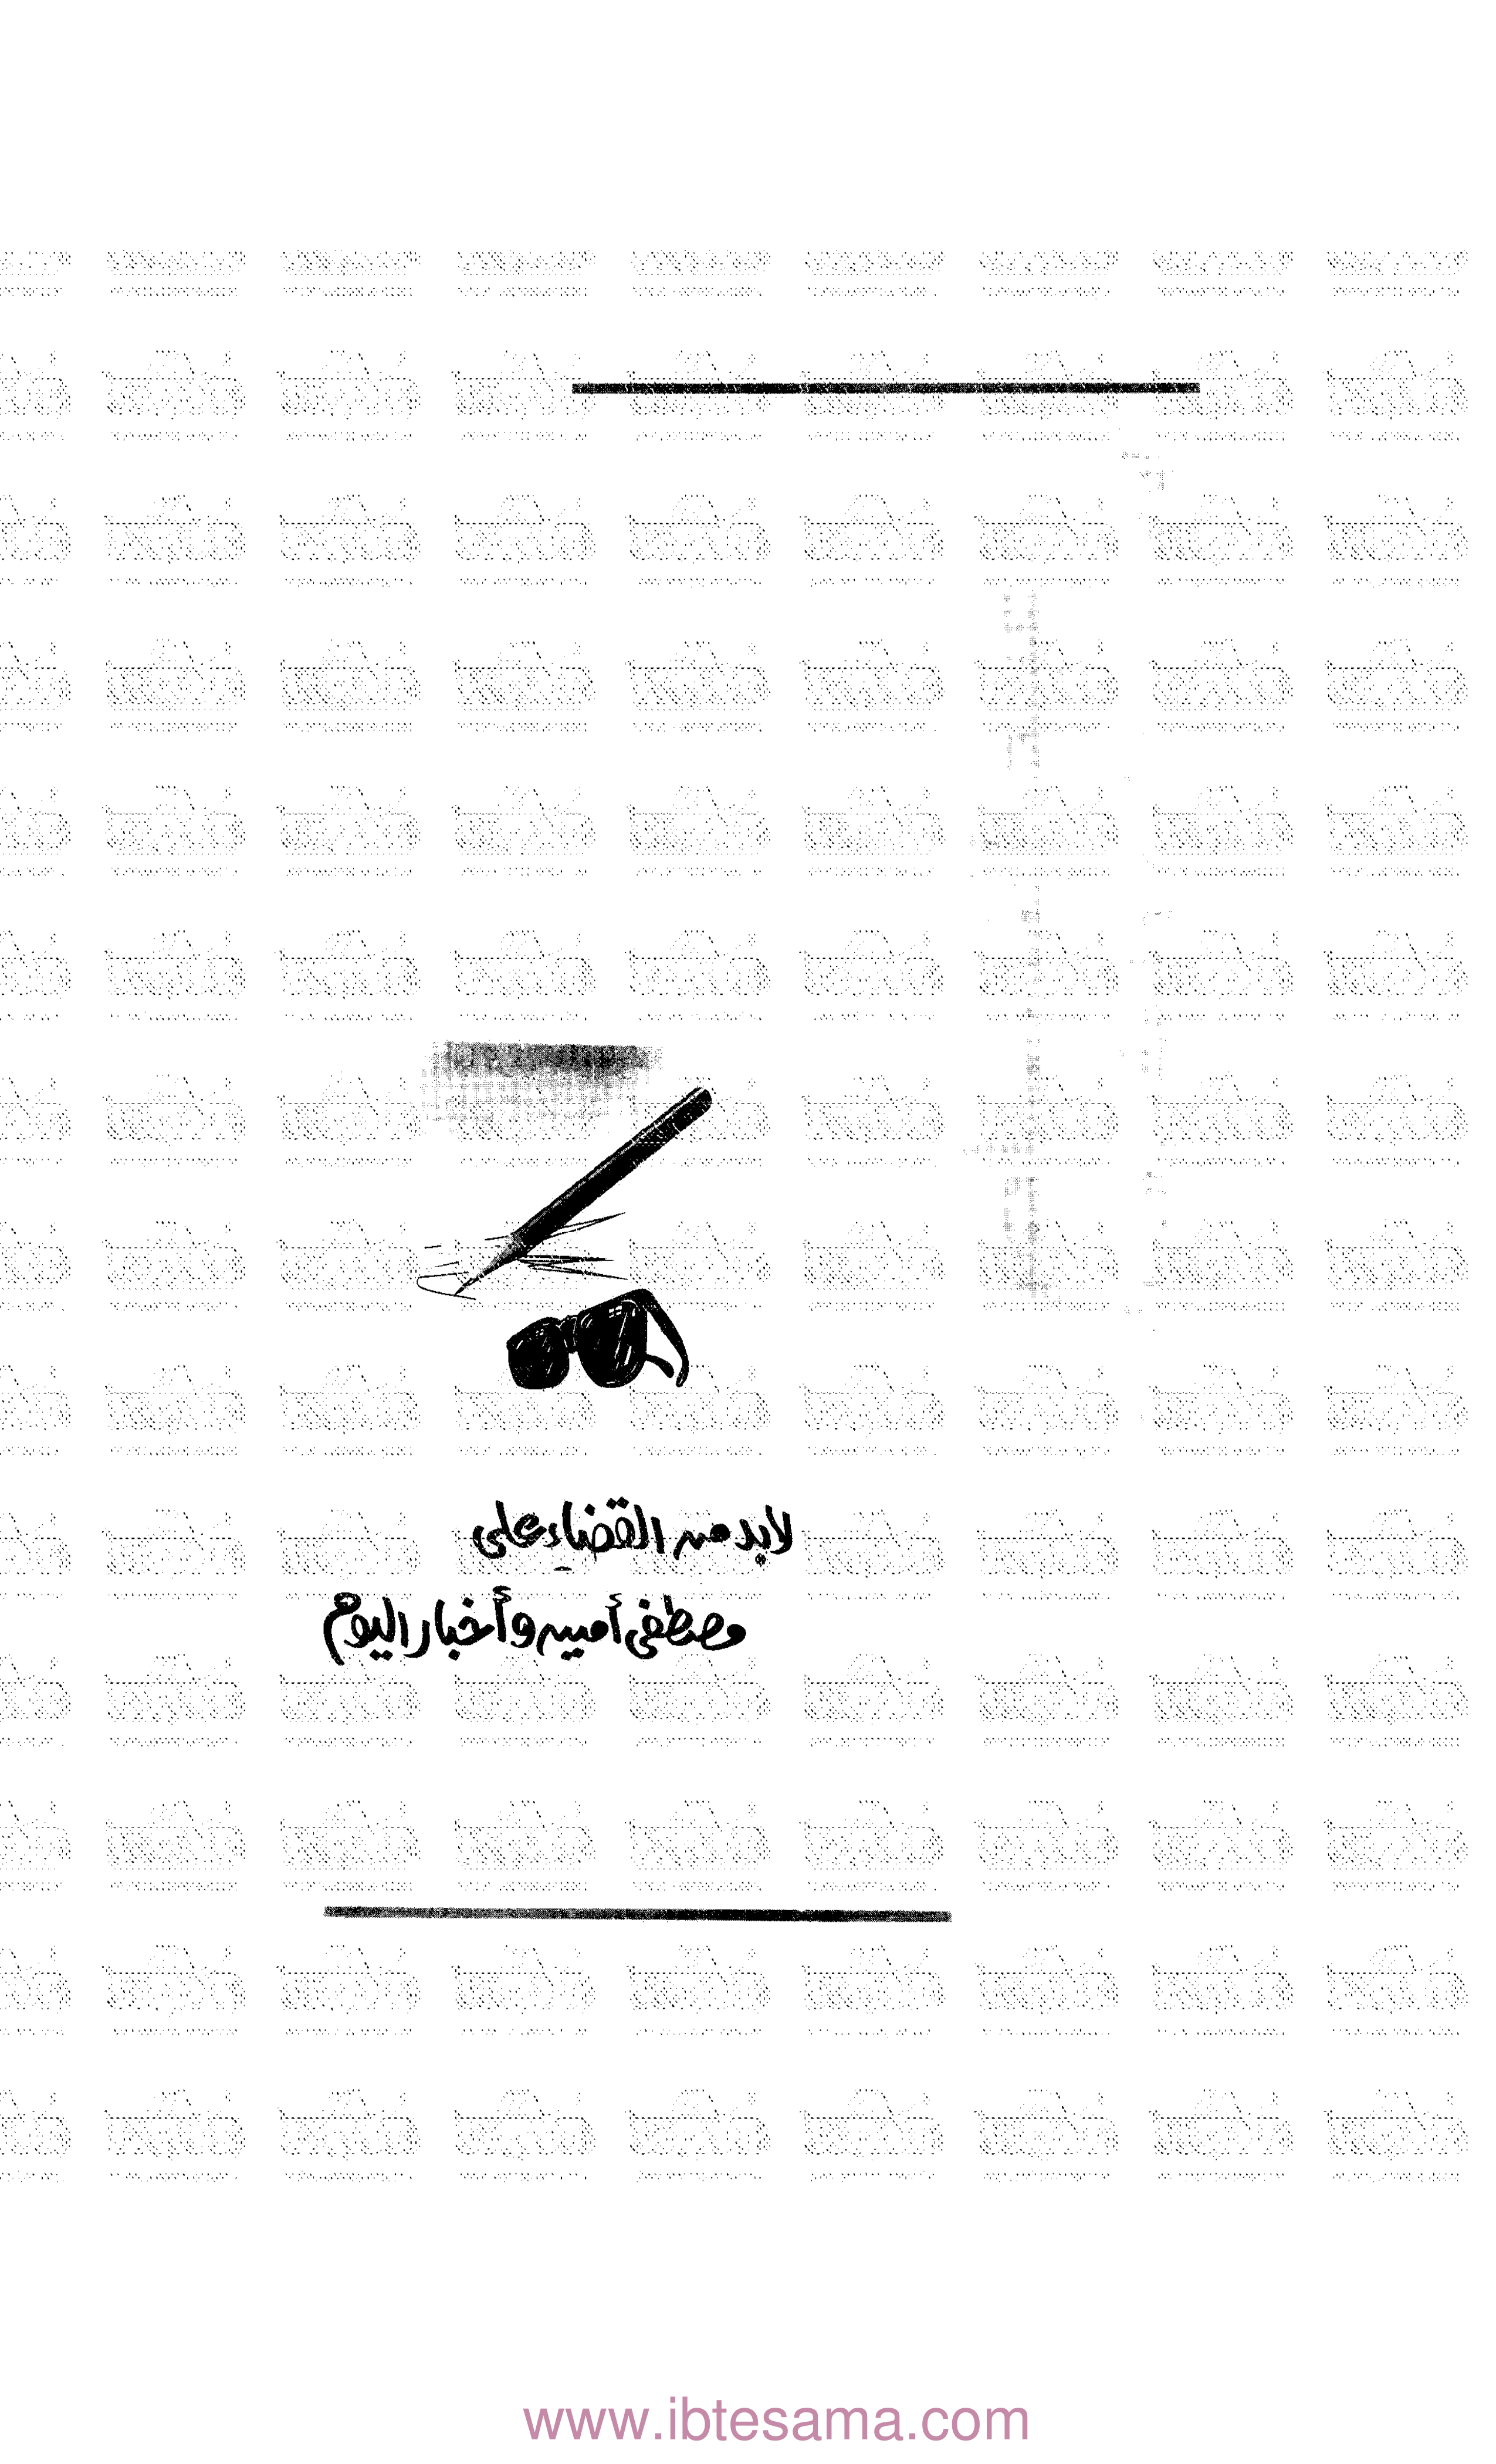 لابد من القضاء على
مصطفى أمين وأخبار اليوم
www.ibtesama.com